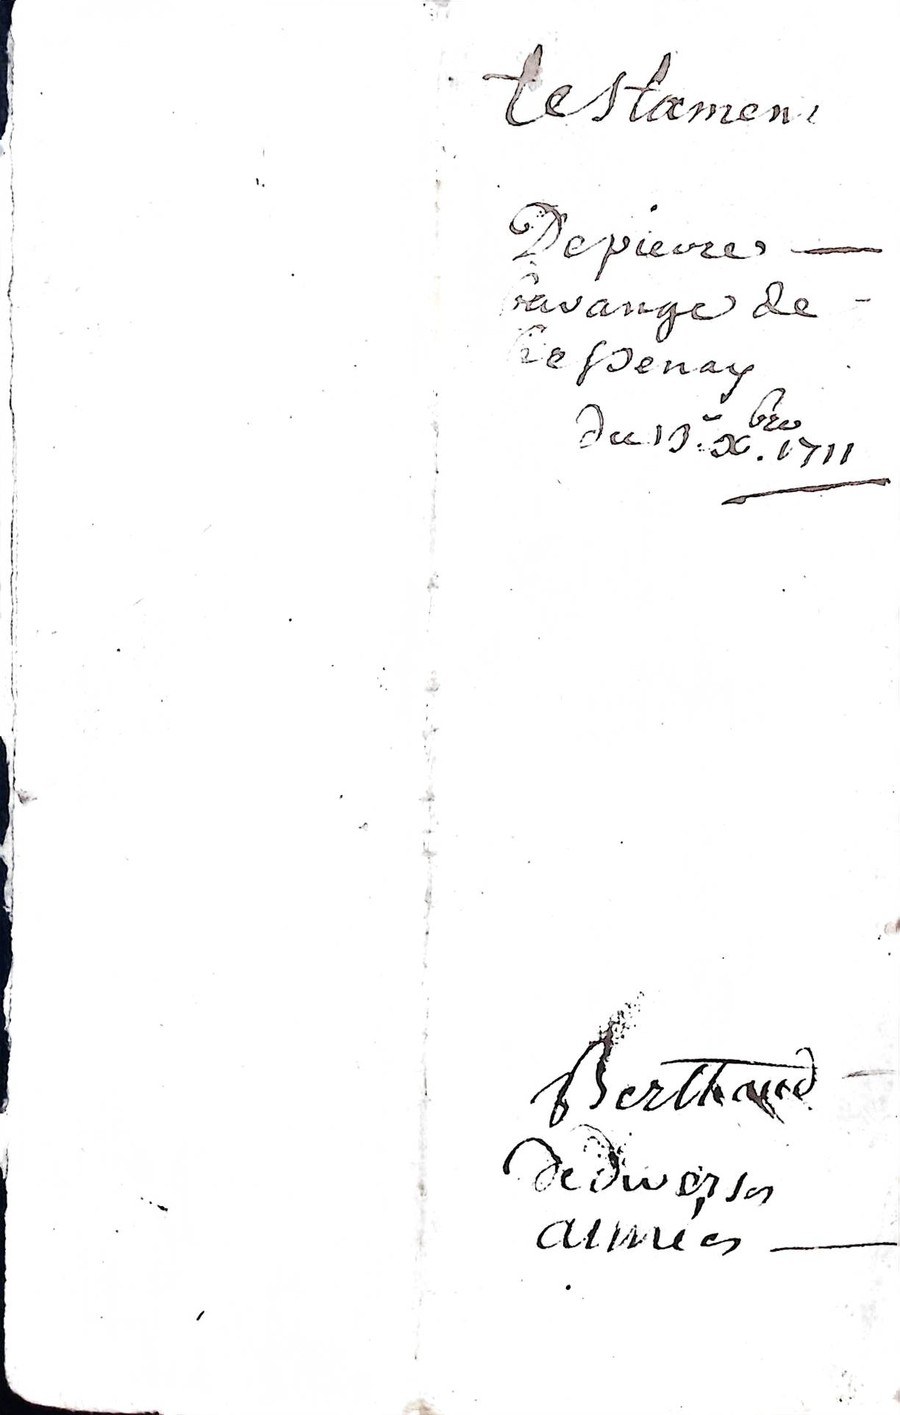 testament
De pierre —
Lavange de -
Lespenay
du 13.e Xbre. 1711
Berthaud
de diverses
années —